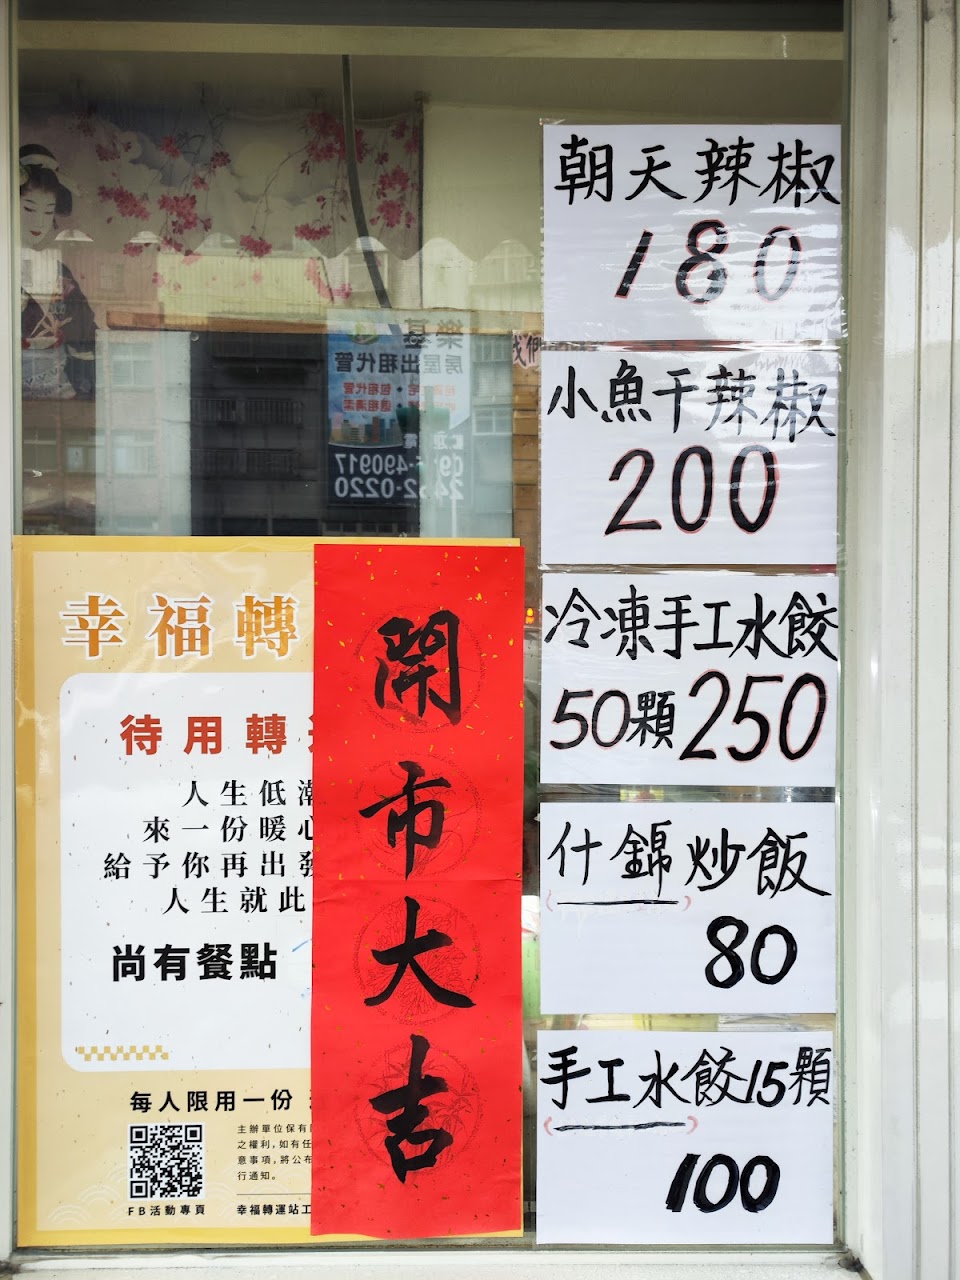 朝天辣椒
180
小魚干辣椒
200
冷凍手工水餃
50顆250
什錦炒飯
80
手工水餃15顆
100
開市大吉
幸福轉
待用轉
人生低潮
來一份暖心
給予你再出發
人生就此
尚有餐點
每人限用一份
主辦單位保有
之權利,如有任
意事項,將公布
行通知。
FB活動專頁
幸福轉運站工
我們
樂基
房屋出租代管
490917
0220